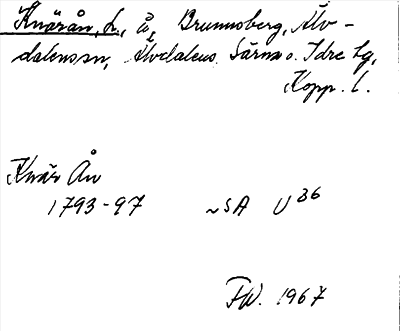 Knärån, L., å, Brunnsberg, Älv-
dalens sn, Älvdalens, Särna o. Idre tg,
Kopp. l.
Knär Ån
1793-97 ~SA U36
FW. 1967